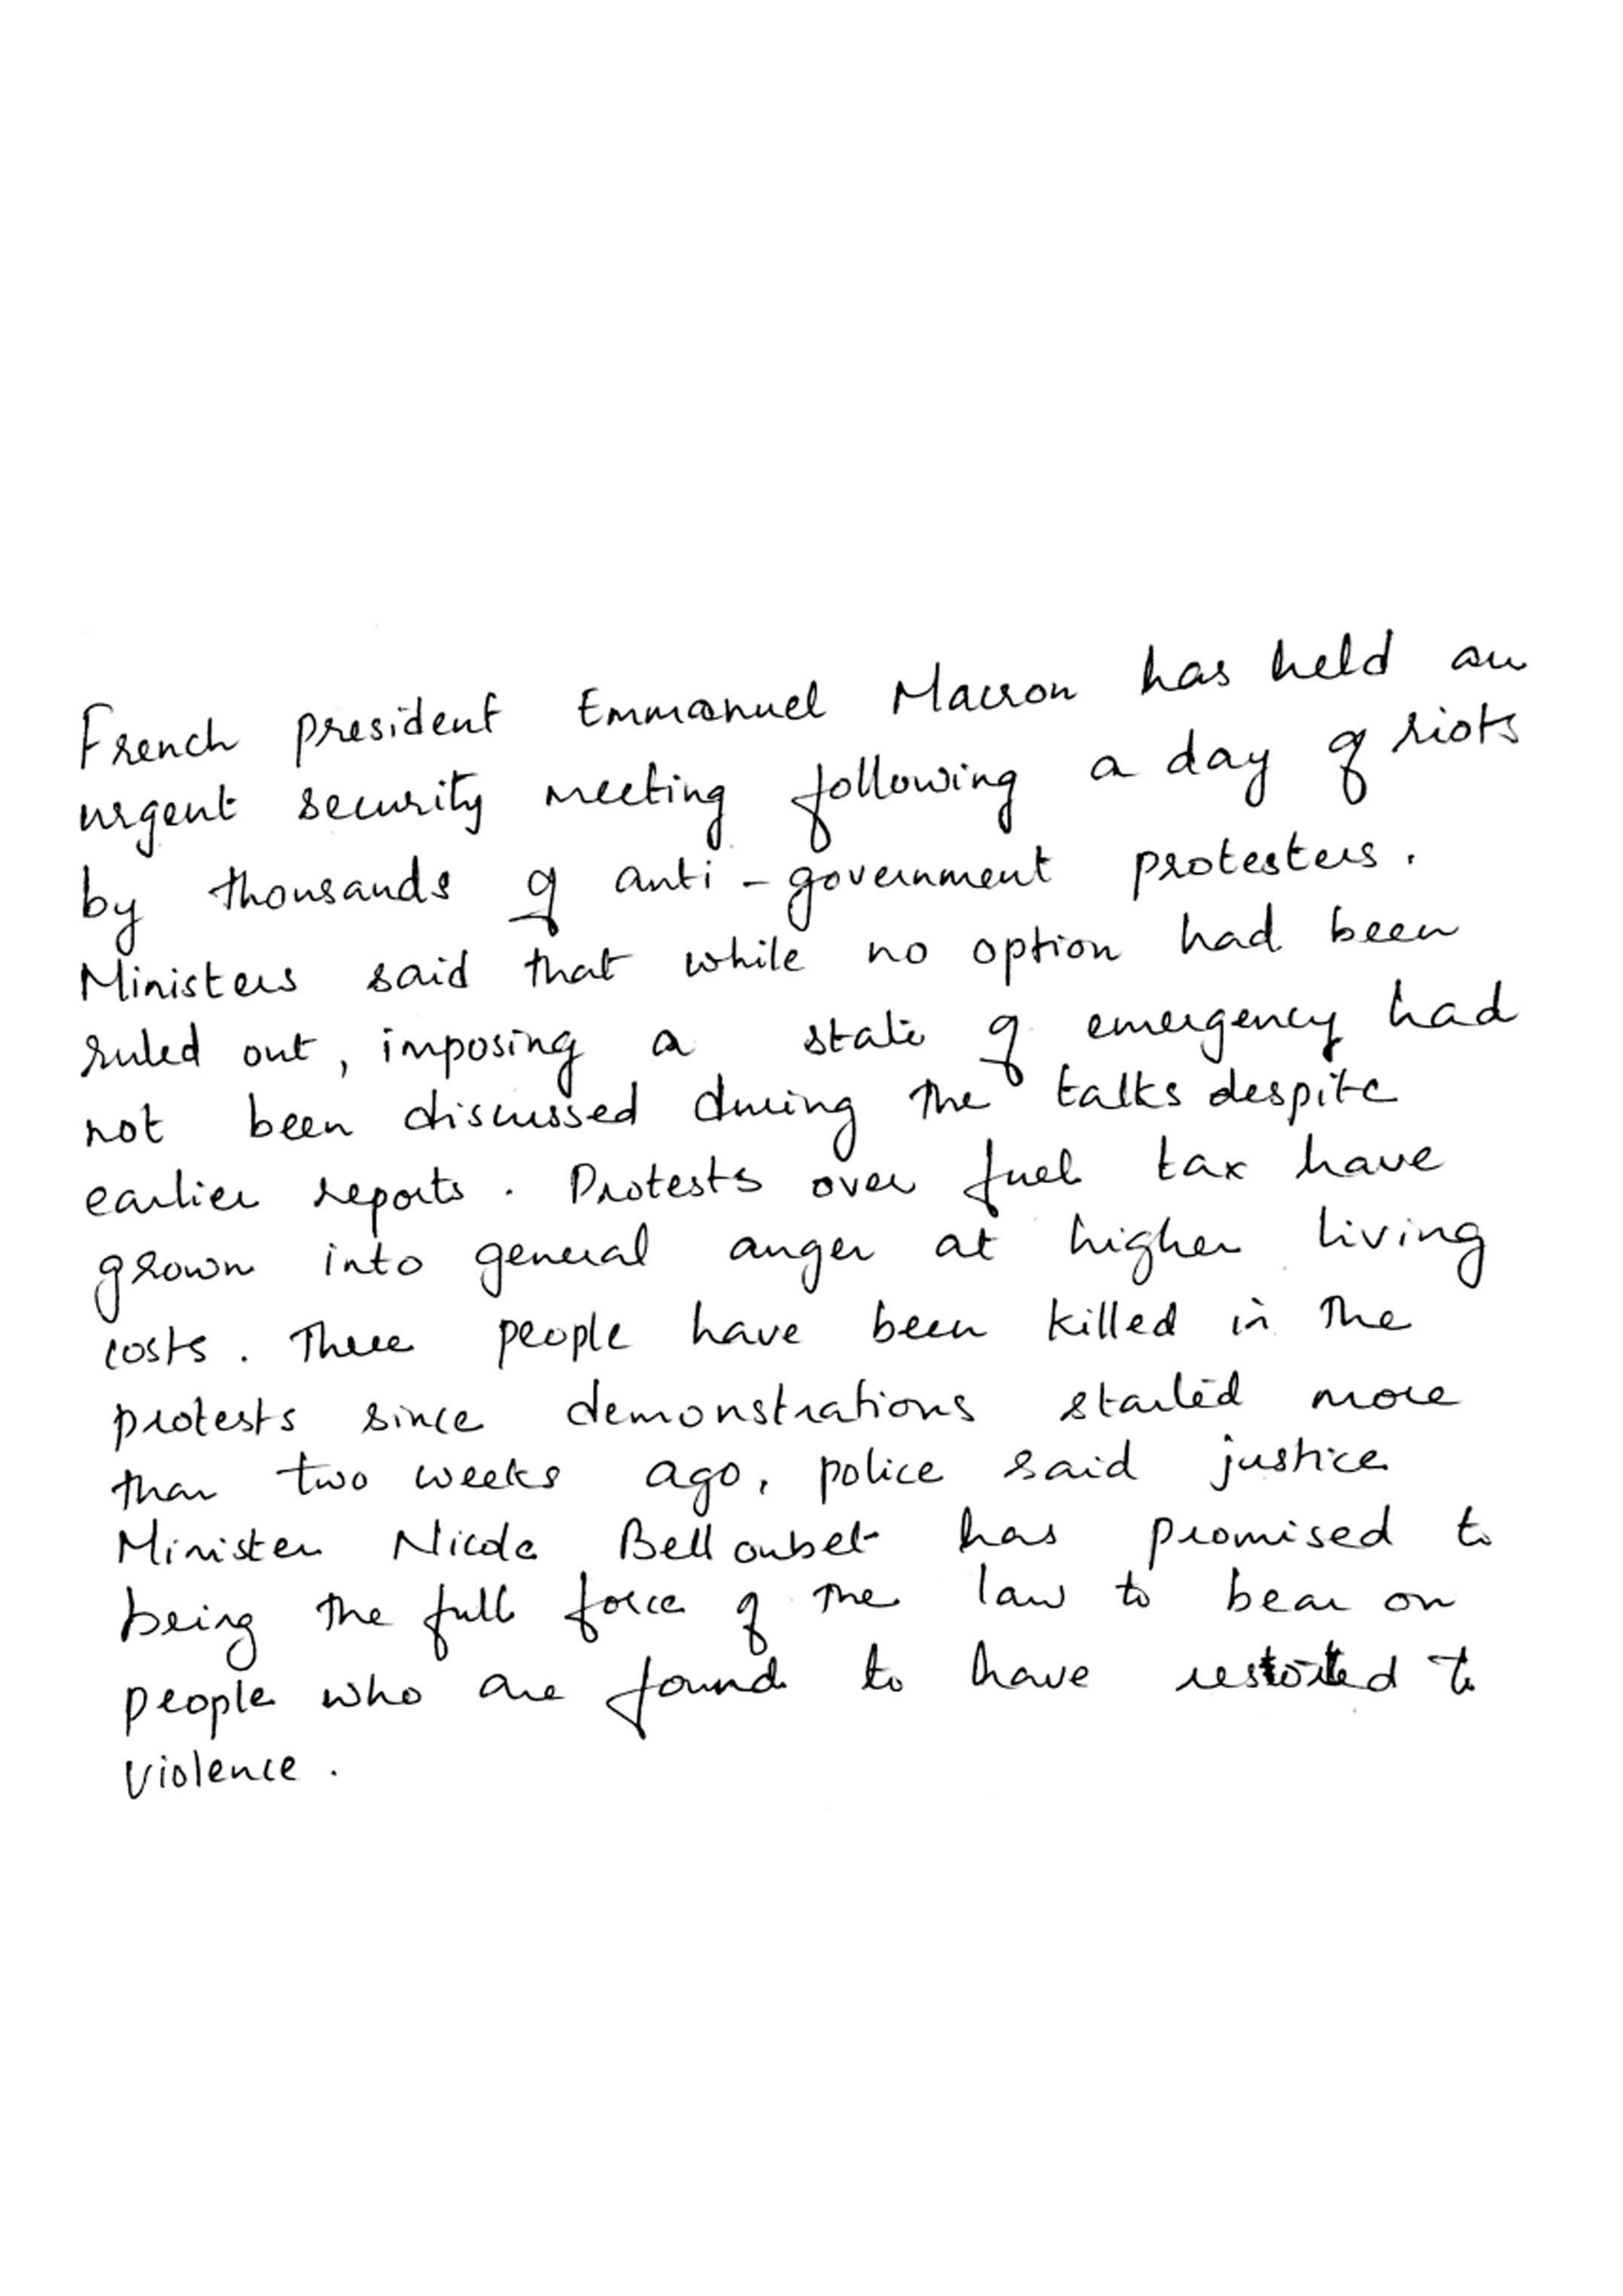 French president Emmanuel Macron has held an
urgent security meeting following a day of riots
by thousands of anti-government protesters.
Ministers said that while no option had been
ruled out, imposing a state of emergency had
not been discussed during the talks despite
earlier reports. Protests over fuel tax have
grown into general anger at higher living
costs. Three people have been killed in the
protests since demonstrations started more
than two weeks ago, police said justice
Minister Nicole Belloubet has promised to
being the full force of the law to bear on
people who are found to have restorted to
violence.